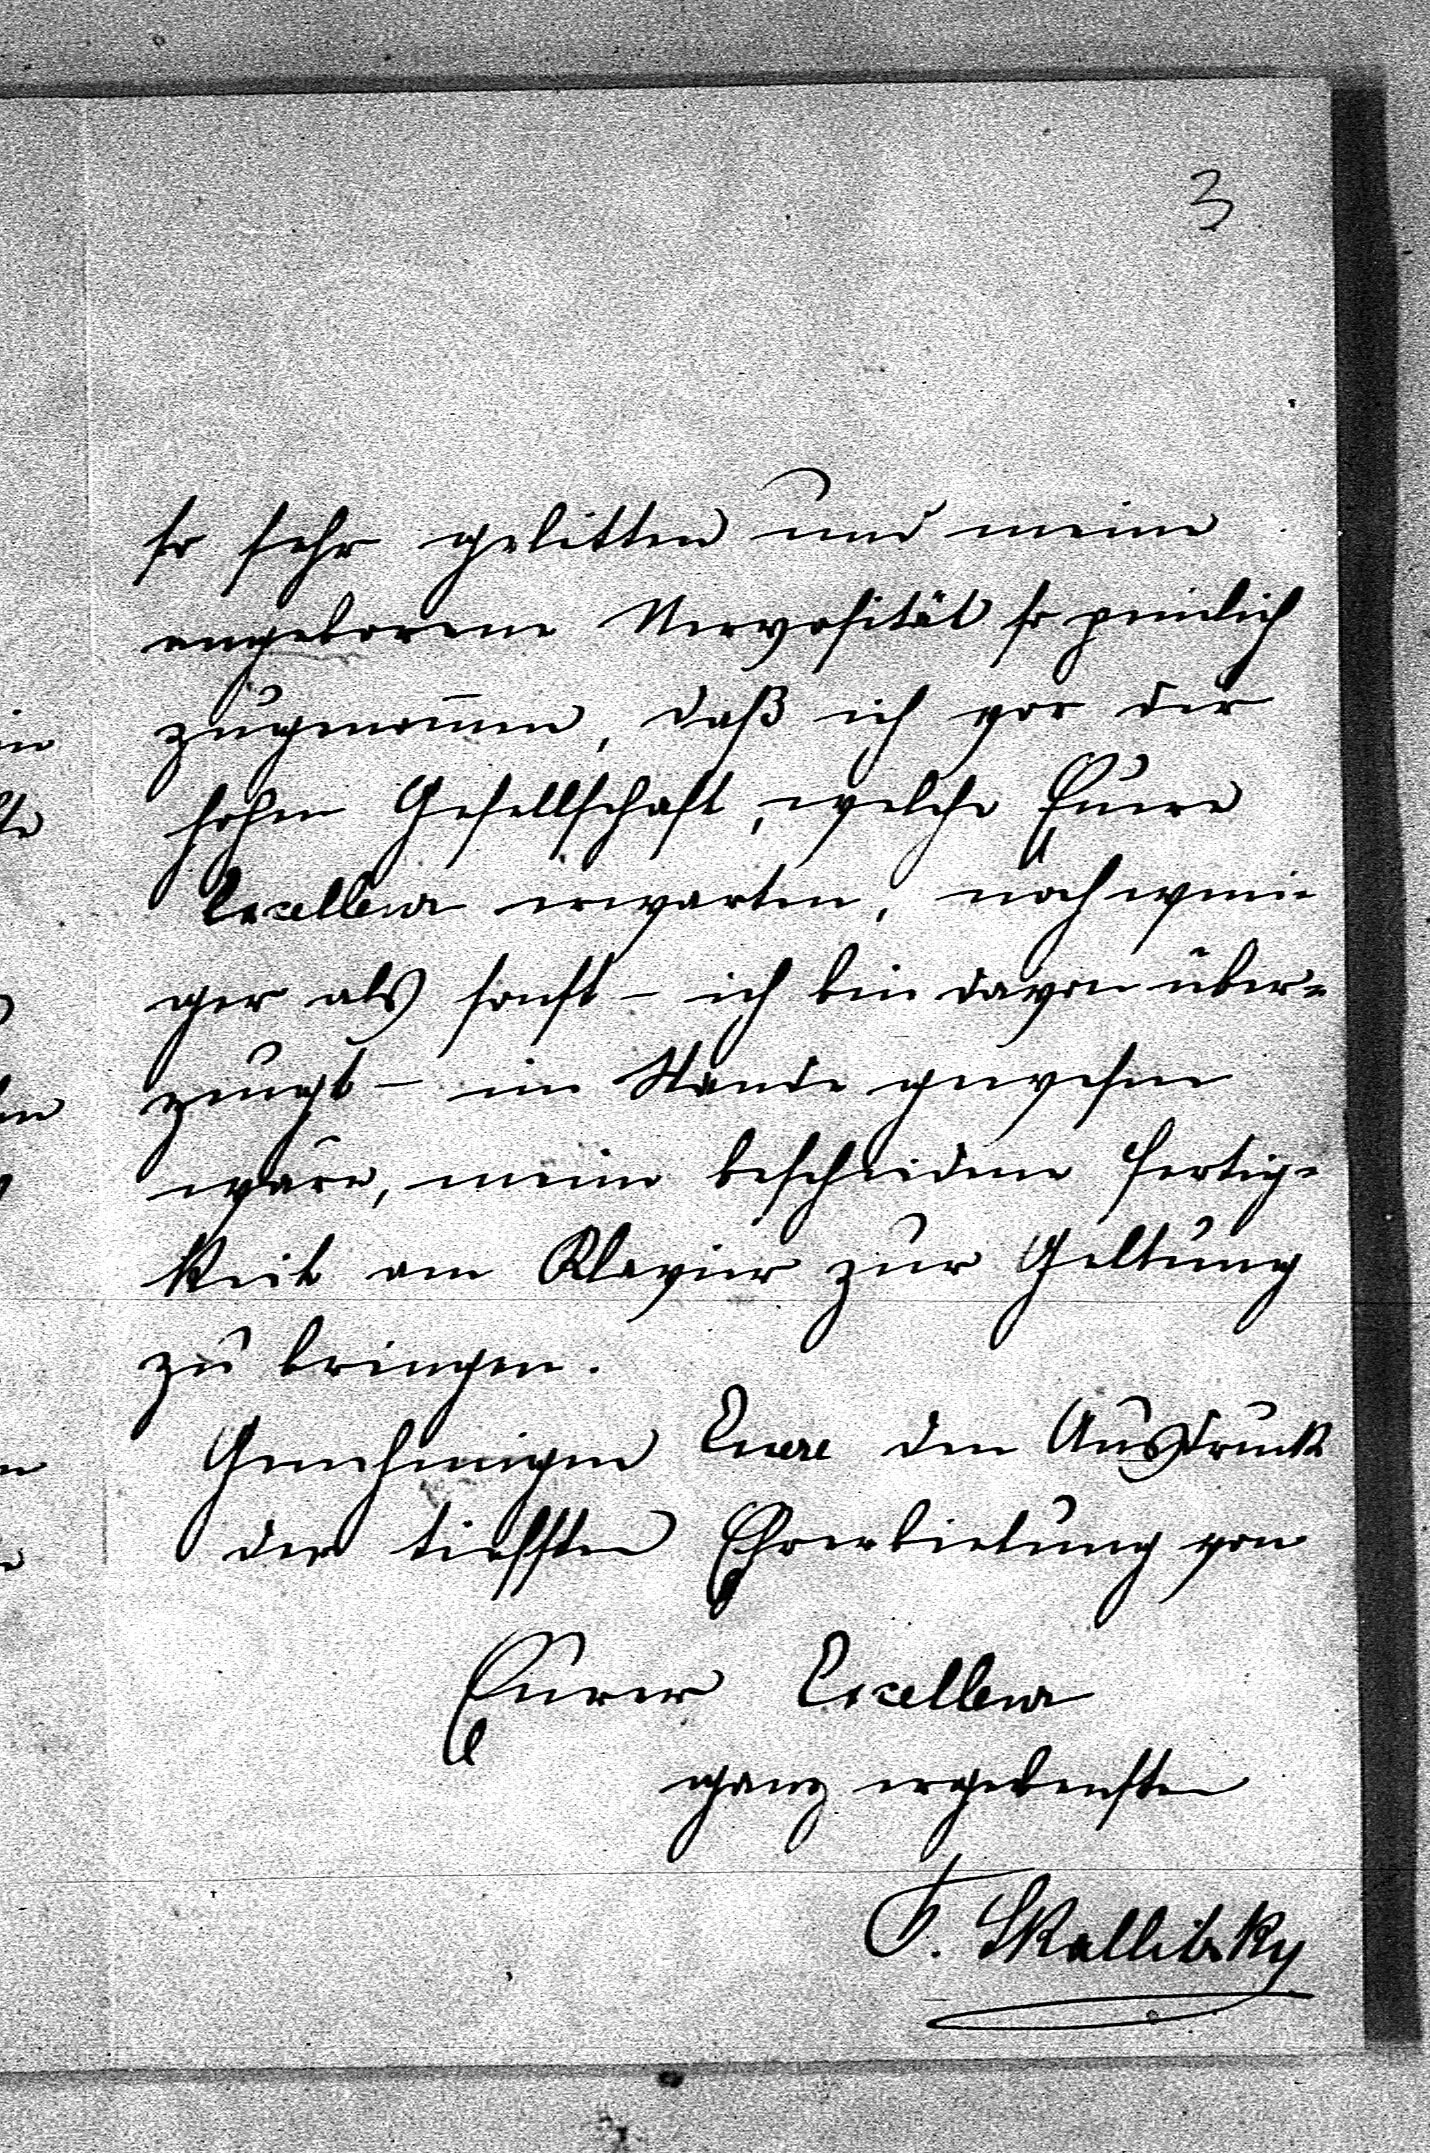 3
so sehr gelitten und meine
angeborene Nervosität so peinlich
zugenom̅en, daß ich vor der
hohen Gesellschaft, welche Euere
Excellenz erwarten, noch weni-
ger als sonst – ich bin davon über-
zeugt – im Stande gewesen
wäre, meine bescheidene Fertig-
keit am Klavier zur Geltung
zu bringen.
Genehmigen Euere den Ausdruck
der tiefsten Ehrerbietung von
Eurer Excellenz
ganz ergebensten
F. Skallitzky